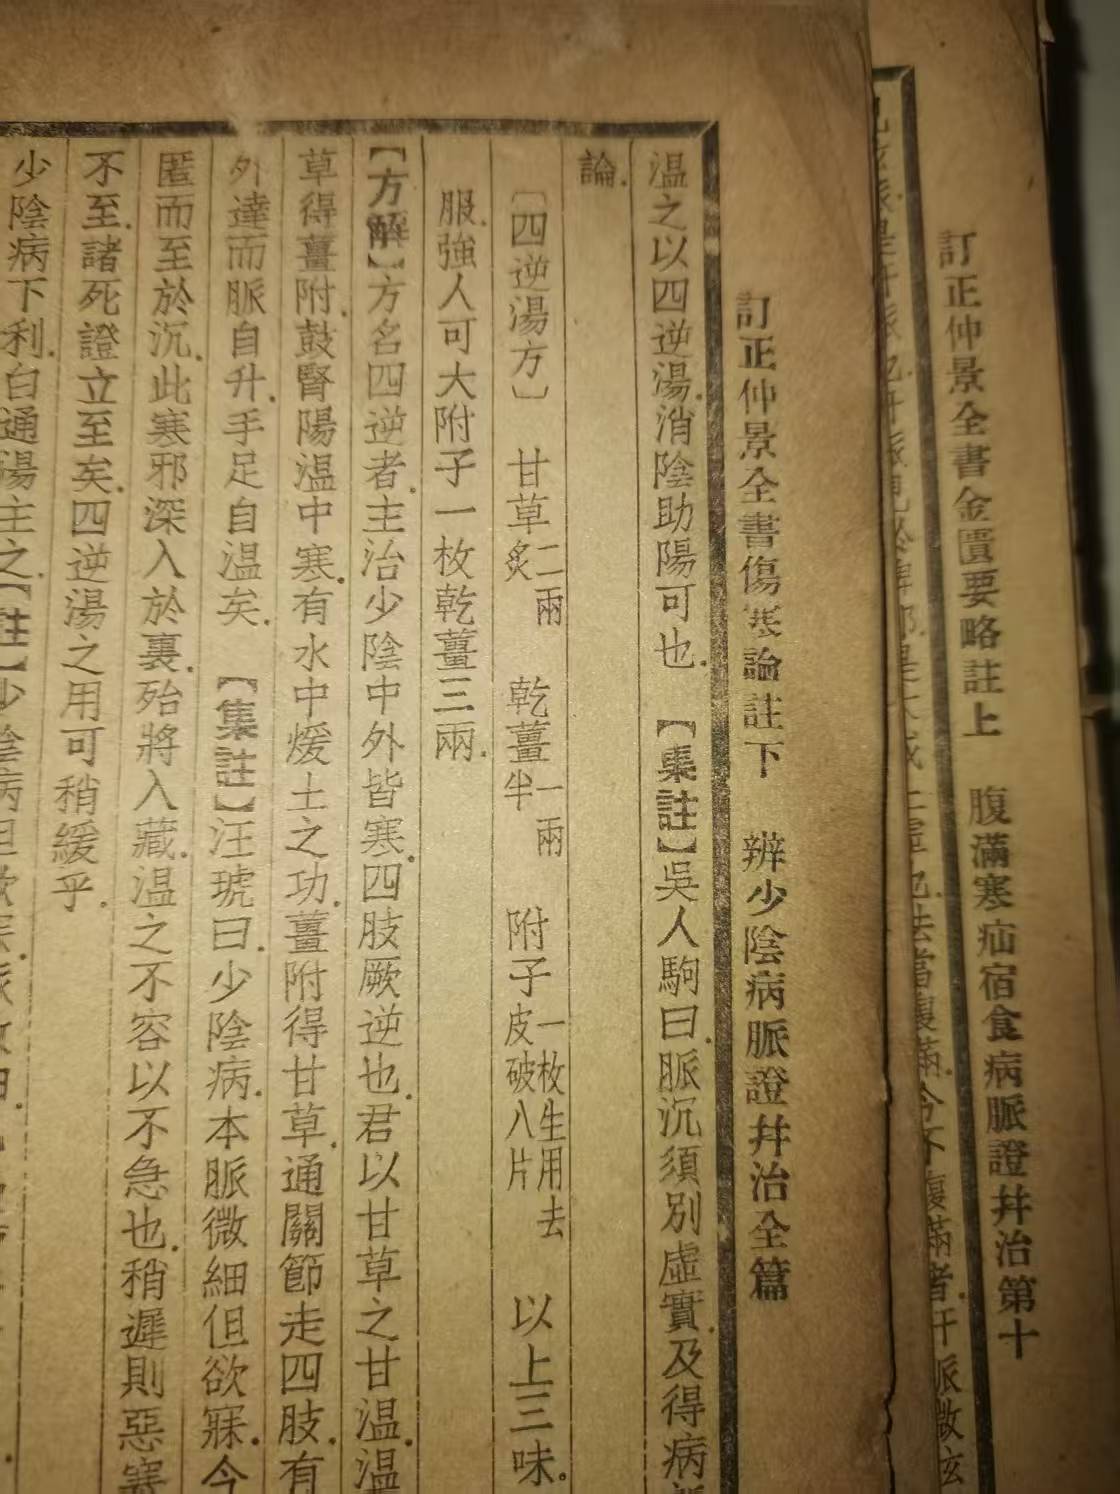 訂正仲景全書金匱要略註上 腹滿寒疝宿食病脈證幷治第十
訂正仲景全書傷寒論註下 辨少陰病脈證幷治全篇
溫之以四逆湯.消陰助陽可也.【集註】吳人駒曰.脈沉須別虛實.及得病
論.
〔四逆湯方〕 甘草二兩炙 乾薑一兩半 附子一枚生用去皮破八片 以上三味。
服.強人可大附子一枚乾薑三兩.
【方解】方名四逆者.主治少陰中外皆寒.四肢厥逆也.君以甘草之甘溫.溫
草得薑附.鼓腎陽溫中寒.有水中煖土之功.薑附得甘草.通關節走四肢.有
外達而脈自升.手足自溫矣.【集註】汪琥曰.少陰病.本脈微細但欲寐.今
匿而至於沉.此寒邪深入於裏.殆將入藏.溫之不容以不急也.稍遲則惡寒
不至.諸死證立至矣.四逆湯之用可稍緩乎.
少陰病下利.白通湯主之.【註】少陰病但欲寐.脈微細.